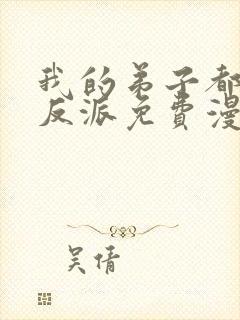 我的弟子都
反派免費漫
吴倩